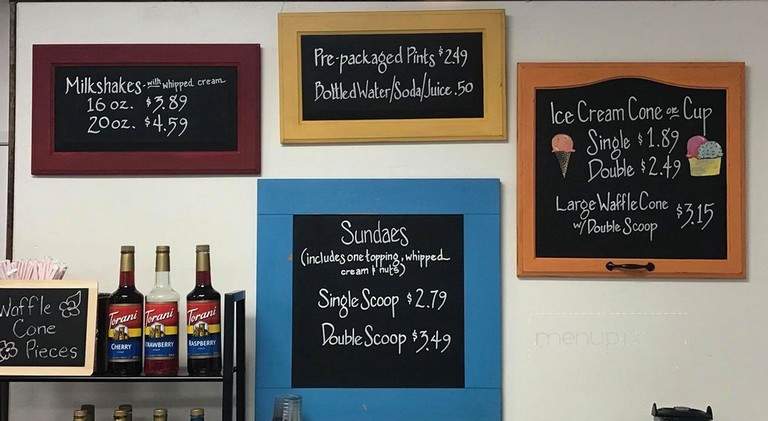 Milkshakes - with whipped cream
16 oz. $3.89
20 oz. $4.59
Pre-packaged Pints $2.49
Bottled Water/Soda/Juice .50
Ice Cream Cone or Cup
Single $1.89
Double $2.49
Large Waffle Cone
w/ Double Scoop $3.15
Sundaes
(includes one topping, whipped
cream & nuts)
Single Scoop $2.79
Double Scoop $3.49
Waffle
Cone
Pieces
Torani
CHERRY
Torani
STRAWBERRY
Torani
RASPBERRY
menupi